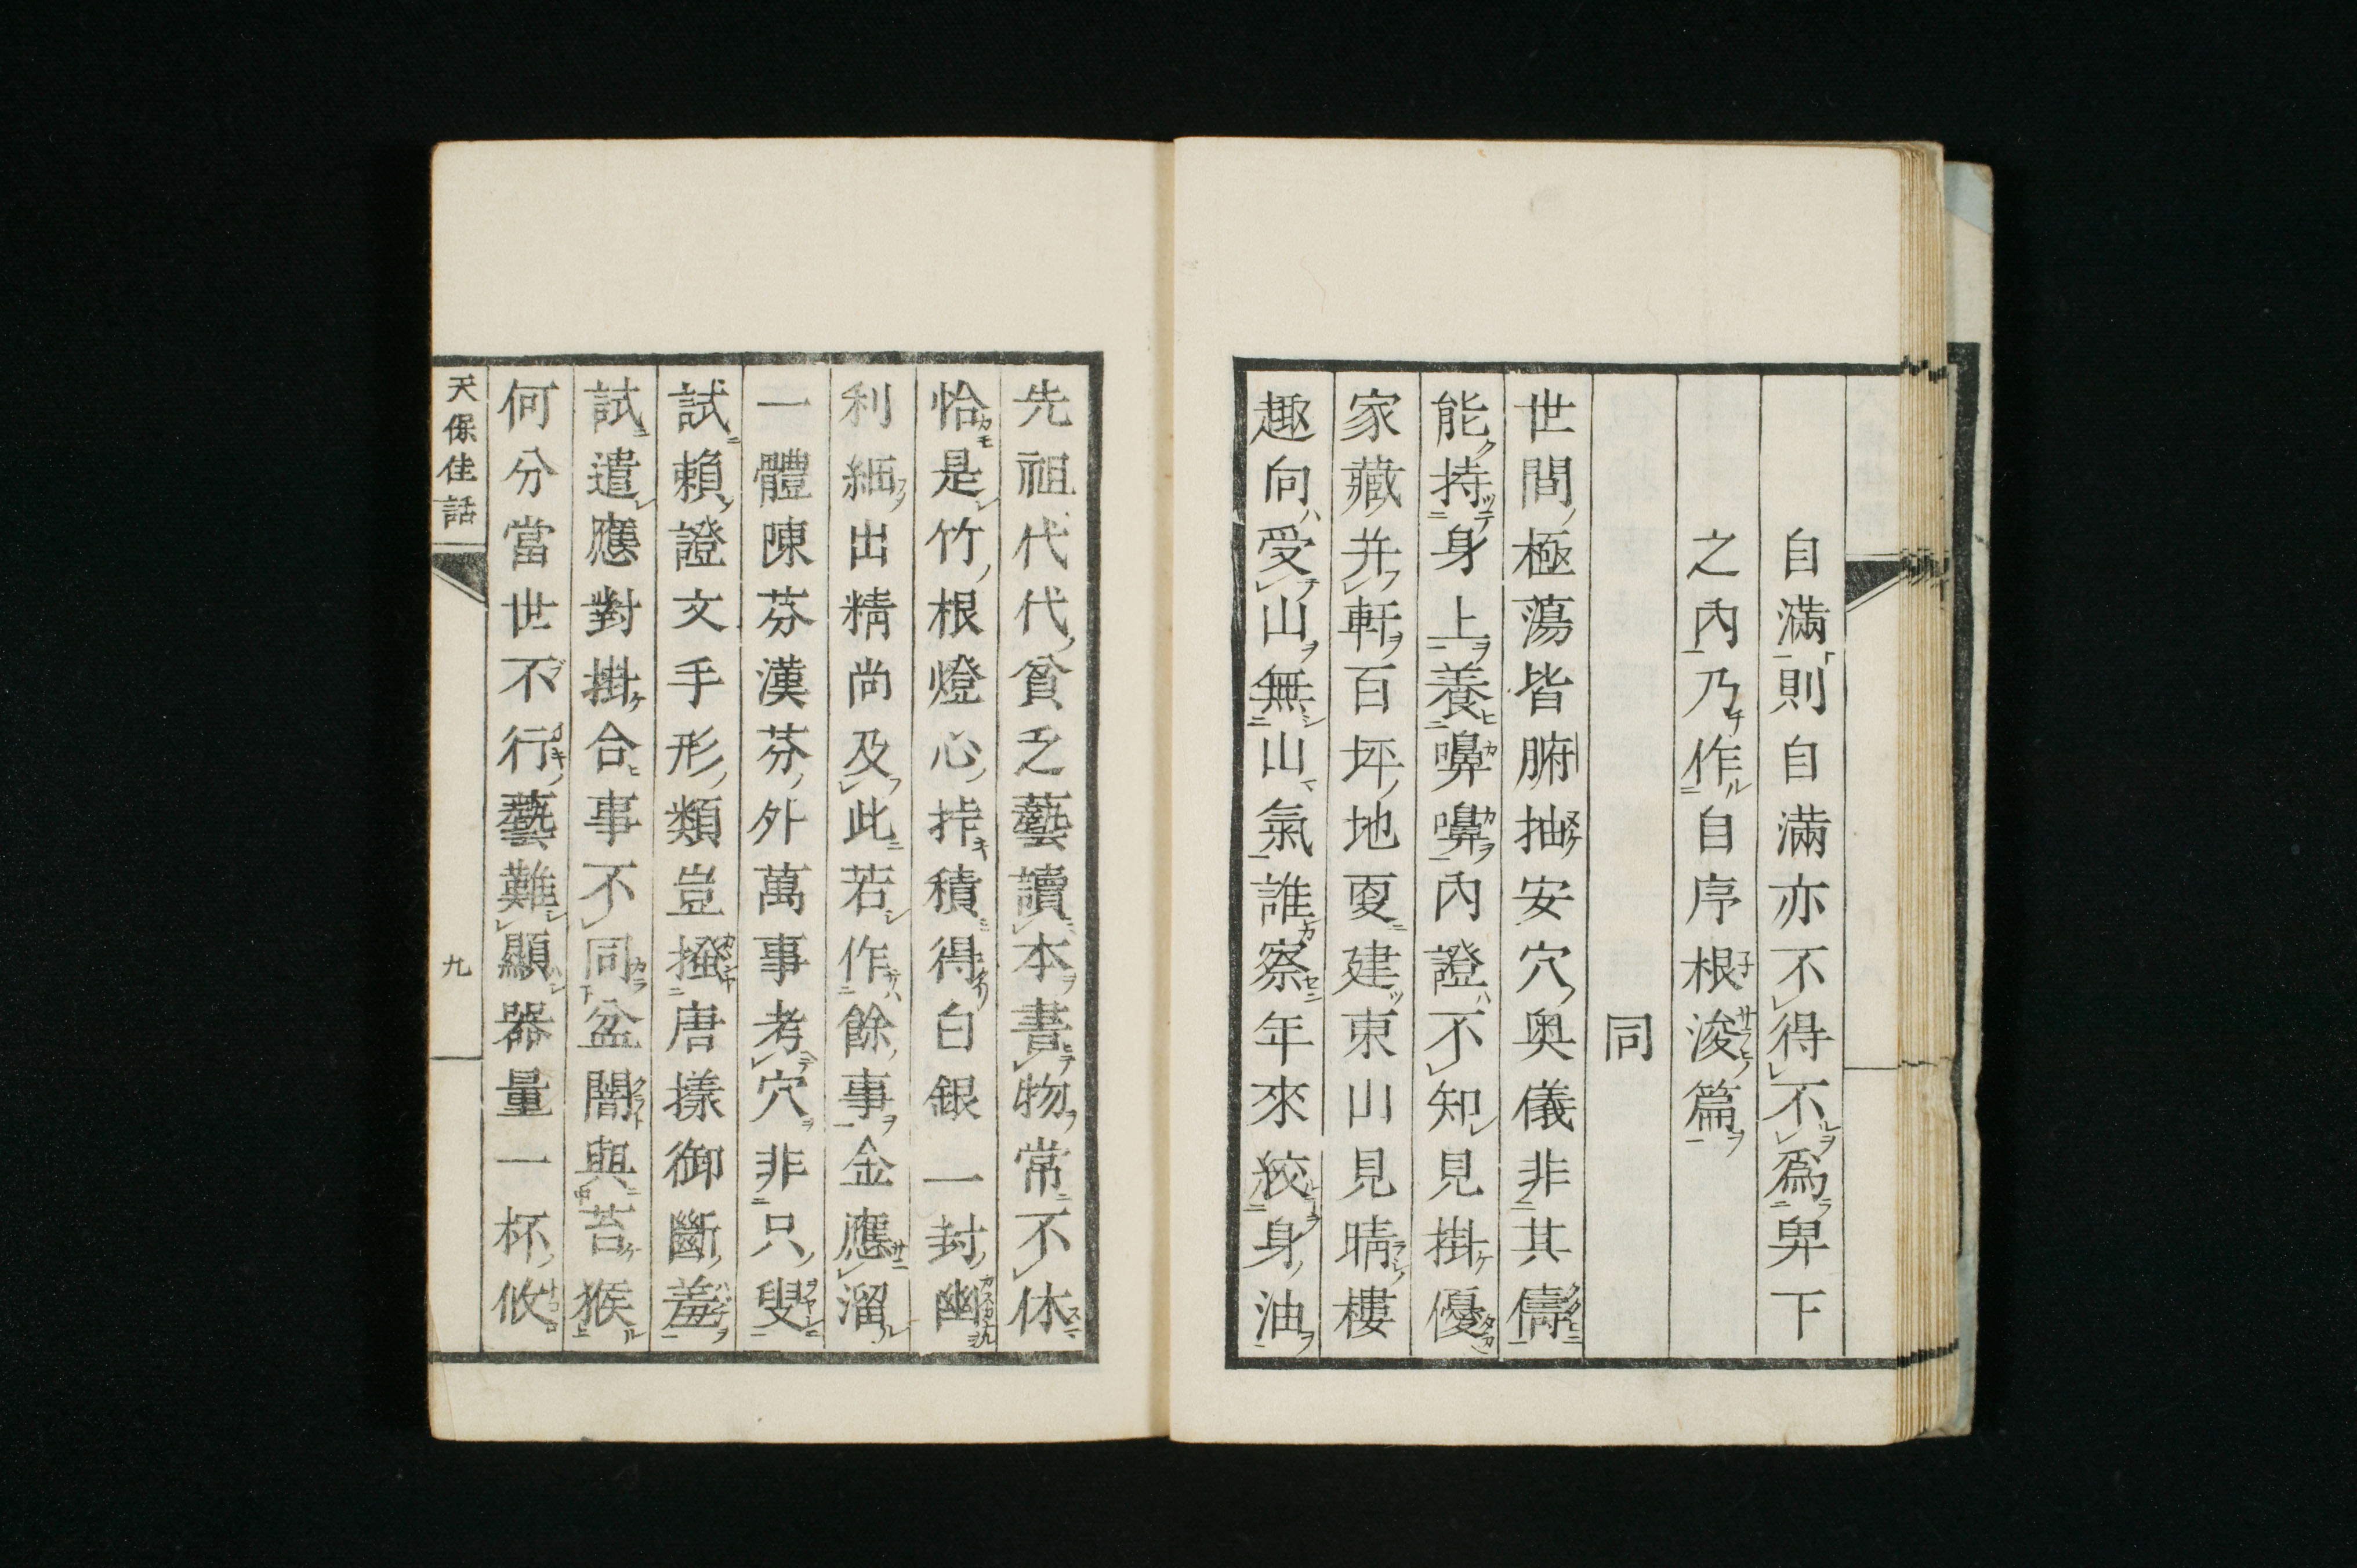 自滿則自滿亦不得不爲卑下
之內乃作自序根浚篇
同
世間極蕩皆腑抽安穴奥儀非其儔
能持身上養嚊嚊內證不知見掛優
家藏并軒百坪地面建東山見晴樓
趣向受山無山氣誰察年來絞身油
先祖代代貧乏藝讀本書物常不休
恰是竹根燈心挊積得白銀一封幽
利緬出精尚及此若作餘事金應溜
一體陳芬漢芬外萬事考穴非只叟
試賴證文手形類豈掻唐樣御斷羞
試遣應對掛合事不同盆闇與苔猴
何分當世不行藝難顯器量一杯攸
天保佳話
九